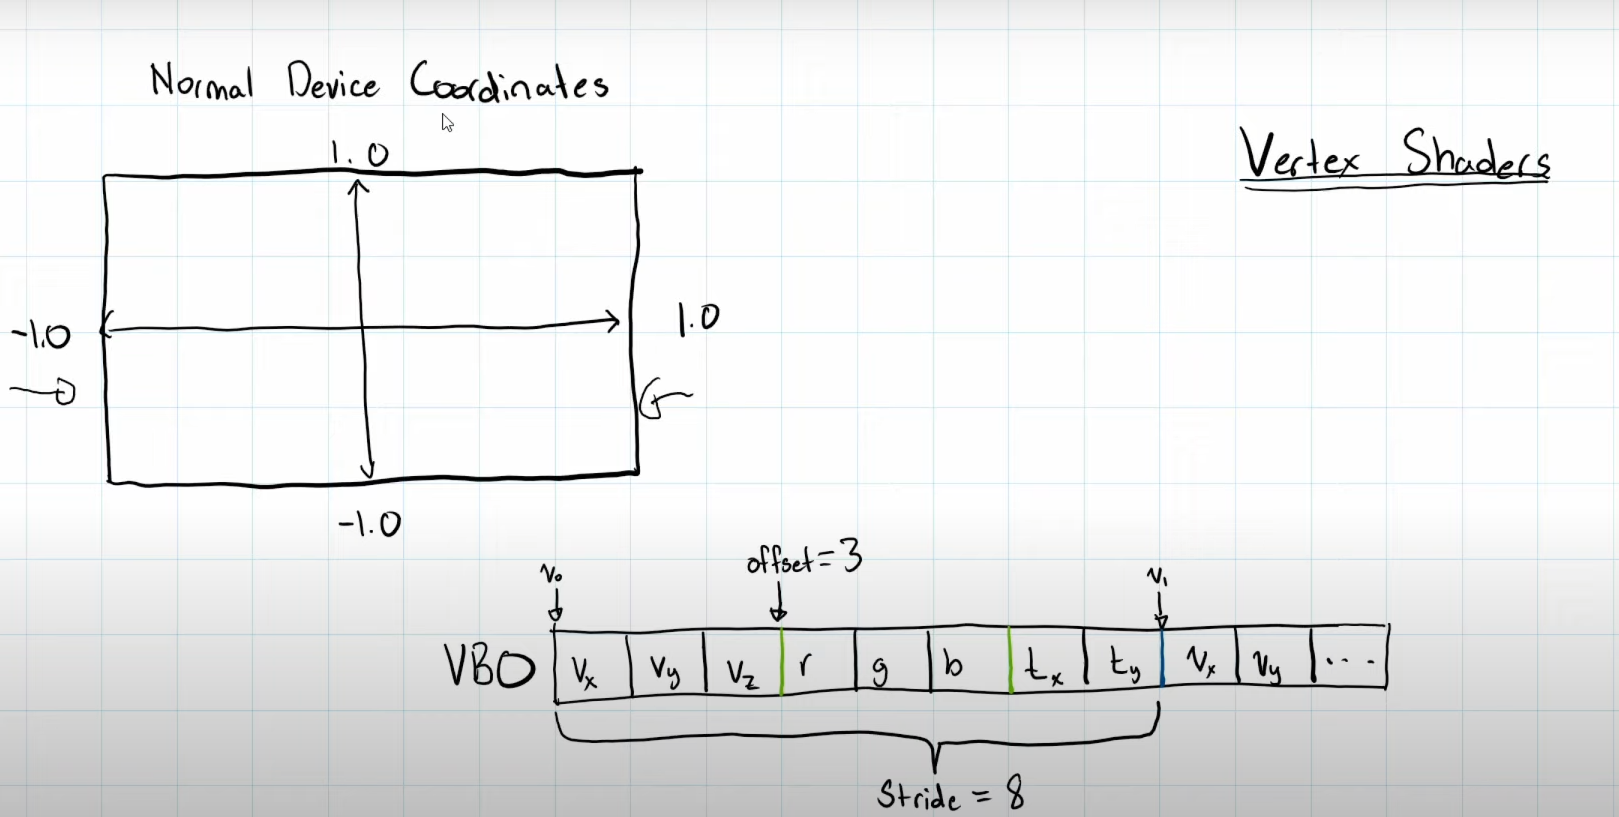 Normal Device Coordinates
Vertex Shaders
1.0
-1.0
1.0
-1.0
offset=3
v₀
v₁
VBO vₓ v_y v_z r g b tₓ t_y vₓ v_y ...
Stride = 8